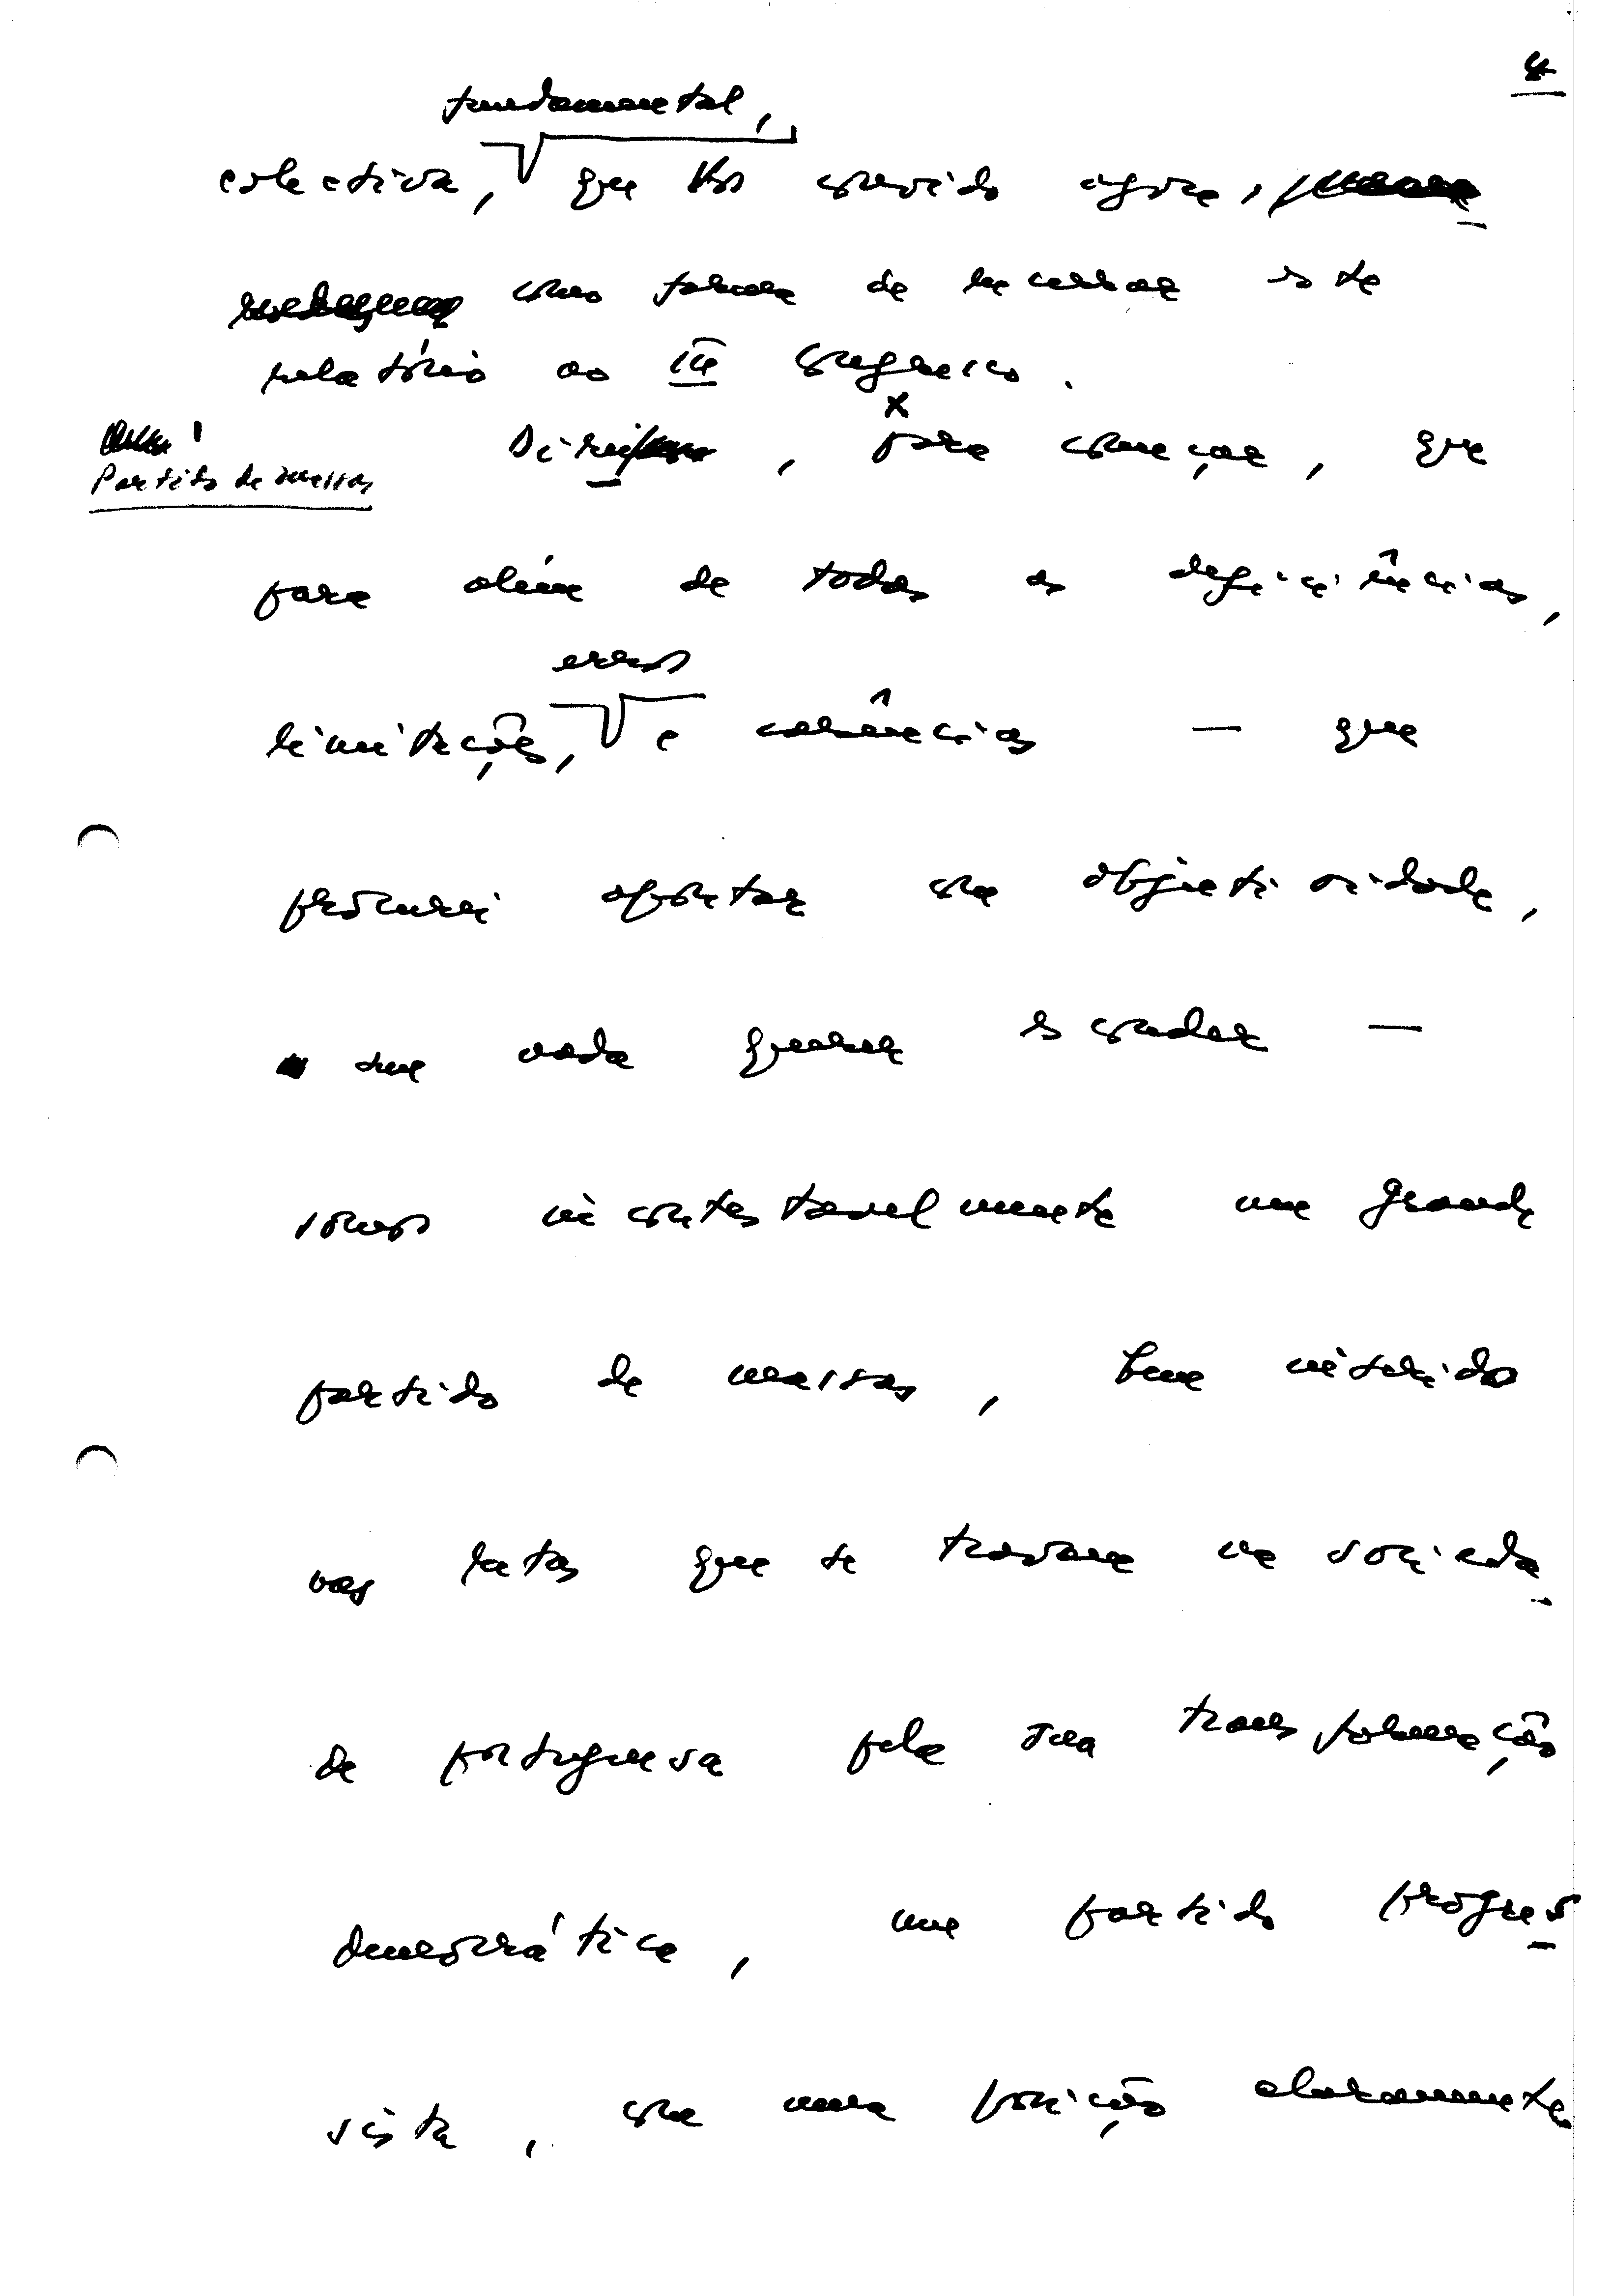 4
fundamental,
colectiva, que vos convido agora,
como forma de encerrar este
relatório ao III Congresso.
Partido de massas
Direi, para começar, que
para além de todas as deficiências,
erros
limitações, e carências — que
procurei apontar com objectividade,
sem nada querer esconder —
somos incontestavelmente um grande
partido de massas, bem inserido
nas lutas que se travam na socieda
de portuguesa pela sua transformação
democrática, um partido progres
sista, com uma posição claramente